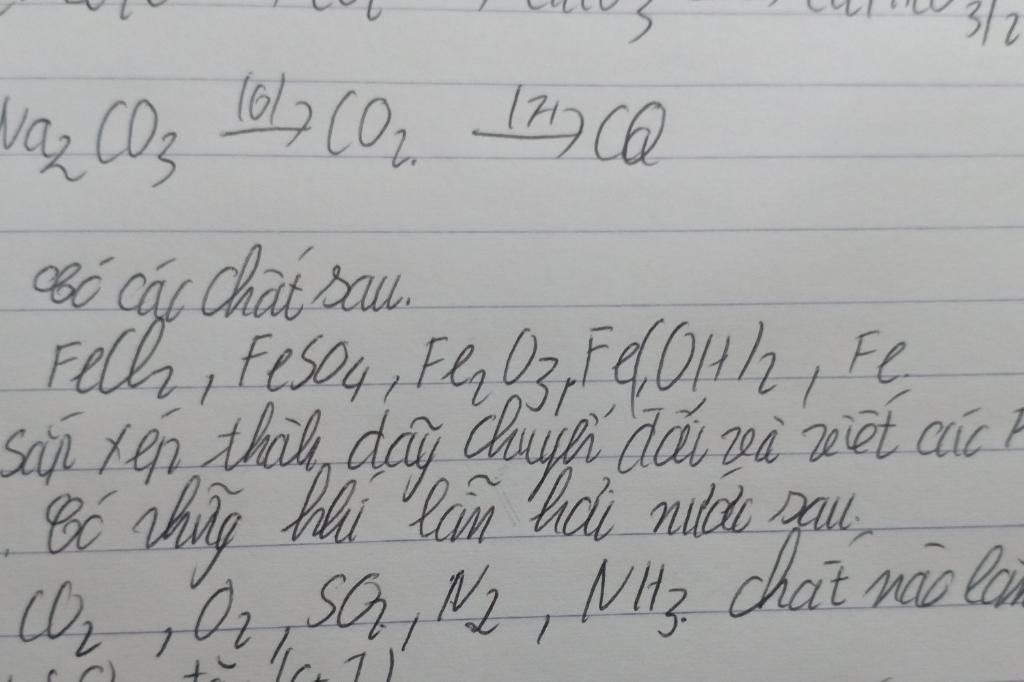 Na2CO3 (6)→ CO2. (7)→ CO
Có các chất sau.
FeCl2, FeSO4, Fe2O3, Fe(OH)2, Fe.
sắp xếp thành dãy chuyển đổi và viết các
Có những khí lẫn hơi nước sau.
CO2, O2, SO2, N2, NH3. chất nào làm